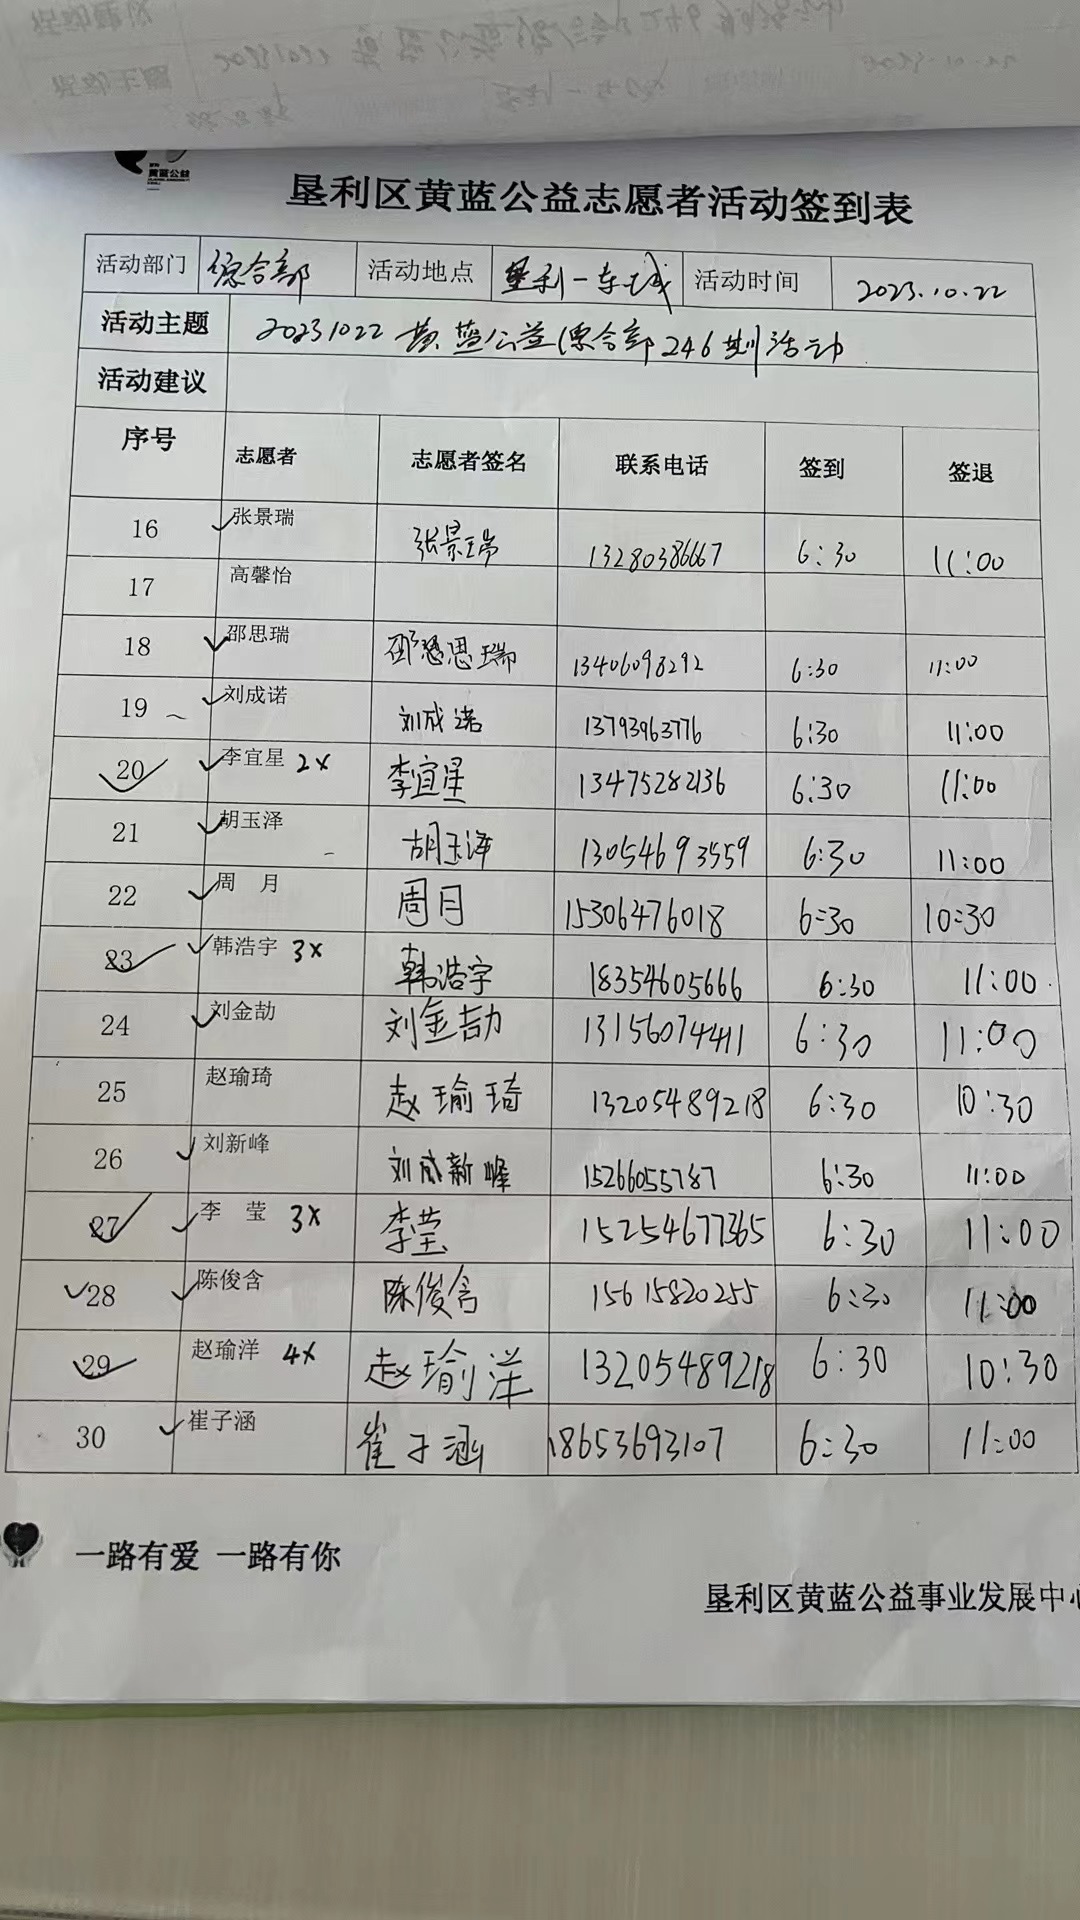 黄蓝公益
垦利区黄蓝公益志愿者活动签到表
活动部门 综合部 活动地点 垦利一东城 活动时间 2023.10.22
活动主题 20231022黄蓝公益综合部246期活动
活动建议
序号 志愿者 志愿者签名 联系电话 签到 签退
16 张景瑞 张景瑞 13280386667 6:30 11:00
17 高馨怡
18 邵思瑞 邵思瑞 13406098292 6:30 11:00
19 刘成诺 刘成诺 13793963776 6:30 11:00
20 李宜星 2x 李宜星 13475282136 6:30 11:00
21 胡玉泽 胡玉泽 13054693559 6:30 11:00
22 周 月 周月 15306476018 6:30 10:30
23 韩浩宇 3x 韩浩宇 18354605666 6:30 11:00
24 刘金劼 刘金劼 13156074411 6:30 11:00
25 赵瑜琦 赵瑜琦 13205489218 6:30 10:30
26 刘新峰 刘新峰 15266055787 6:30 11:00
27 李 莹 3x 李莹 15254677365 6:30 11:00
28 陈俊含 陈俊含 15615820255 6:30 11:00
29 赵瑜洋 4x 赵瑜洋 13205489218 6:30 10:30
30 崔子涵 崔子涵 18653693107 6:30 11:00
一路有爱 一路有你
垦利区黄蓝公益事业发展中心